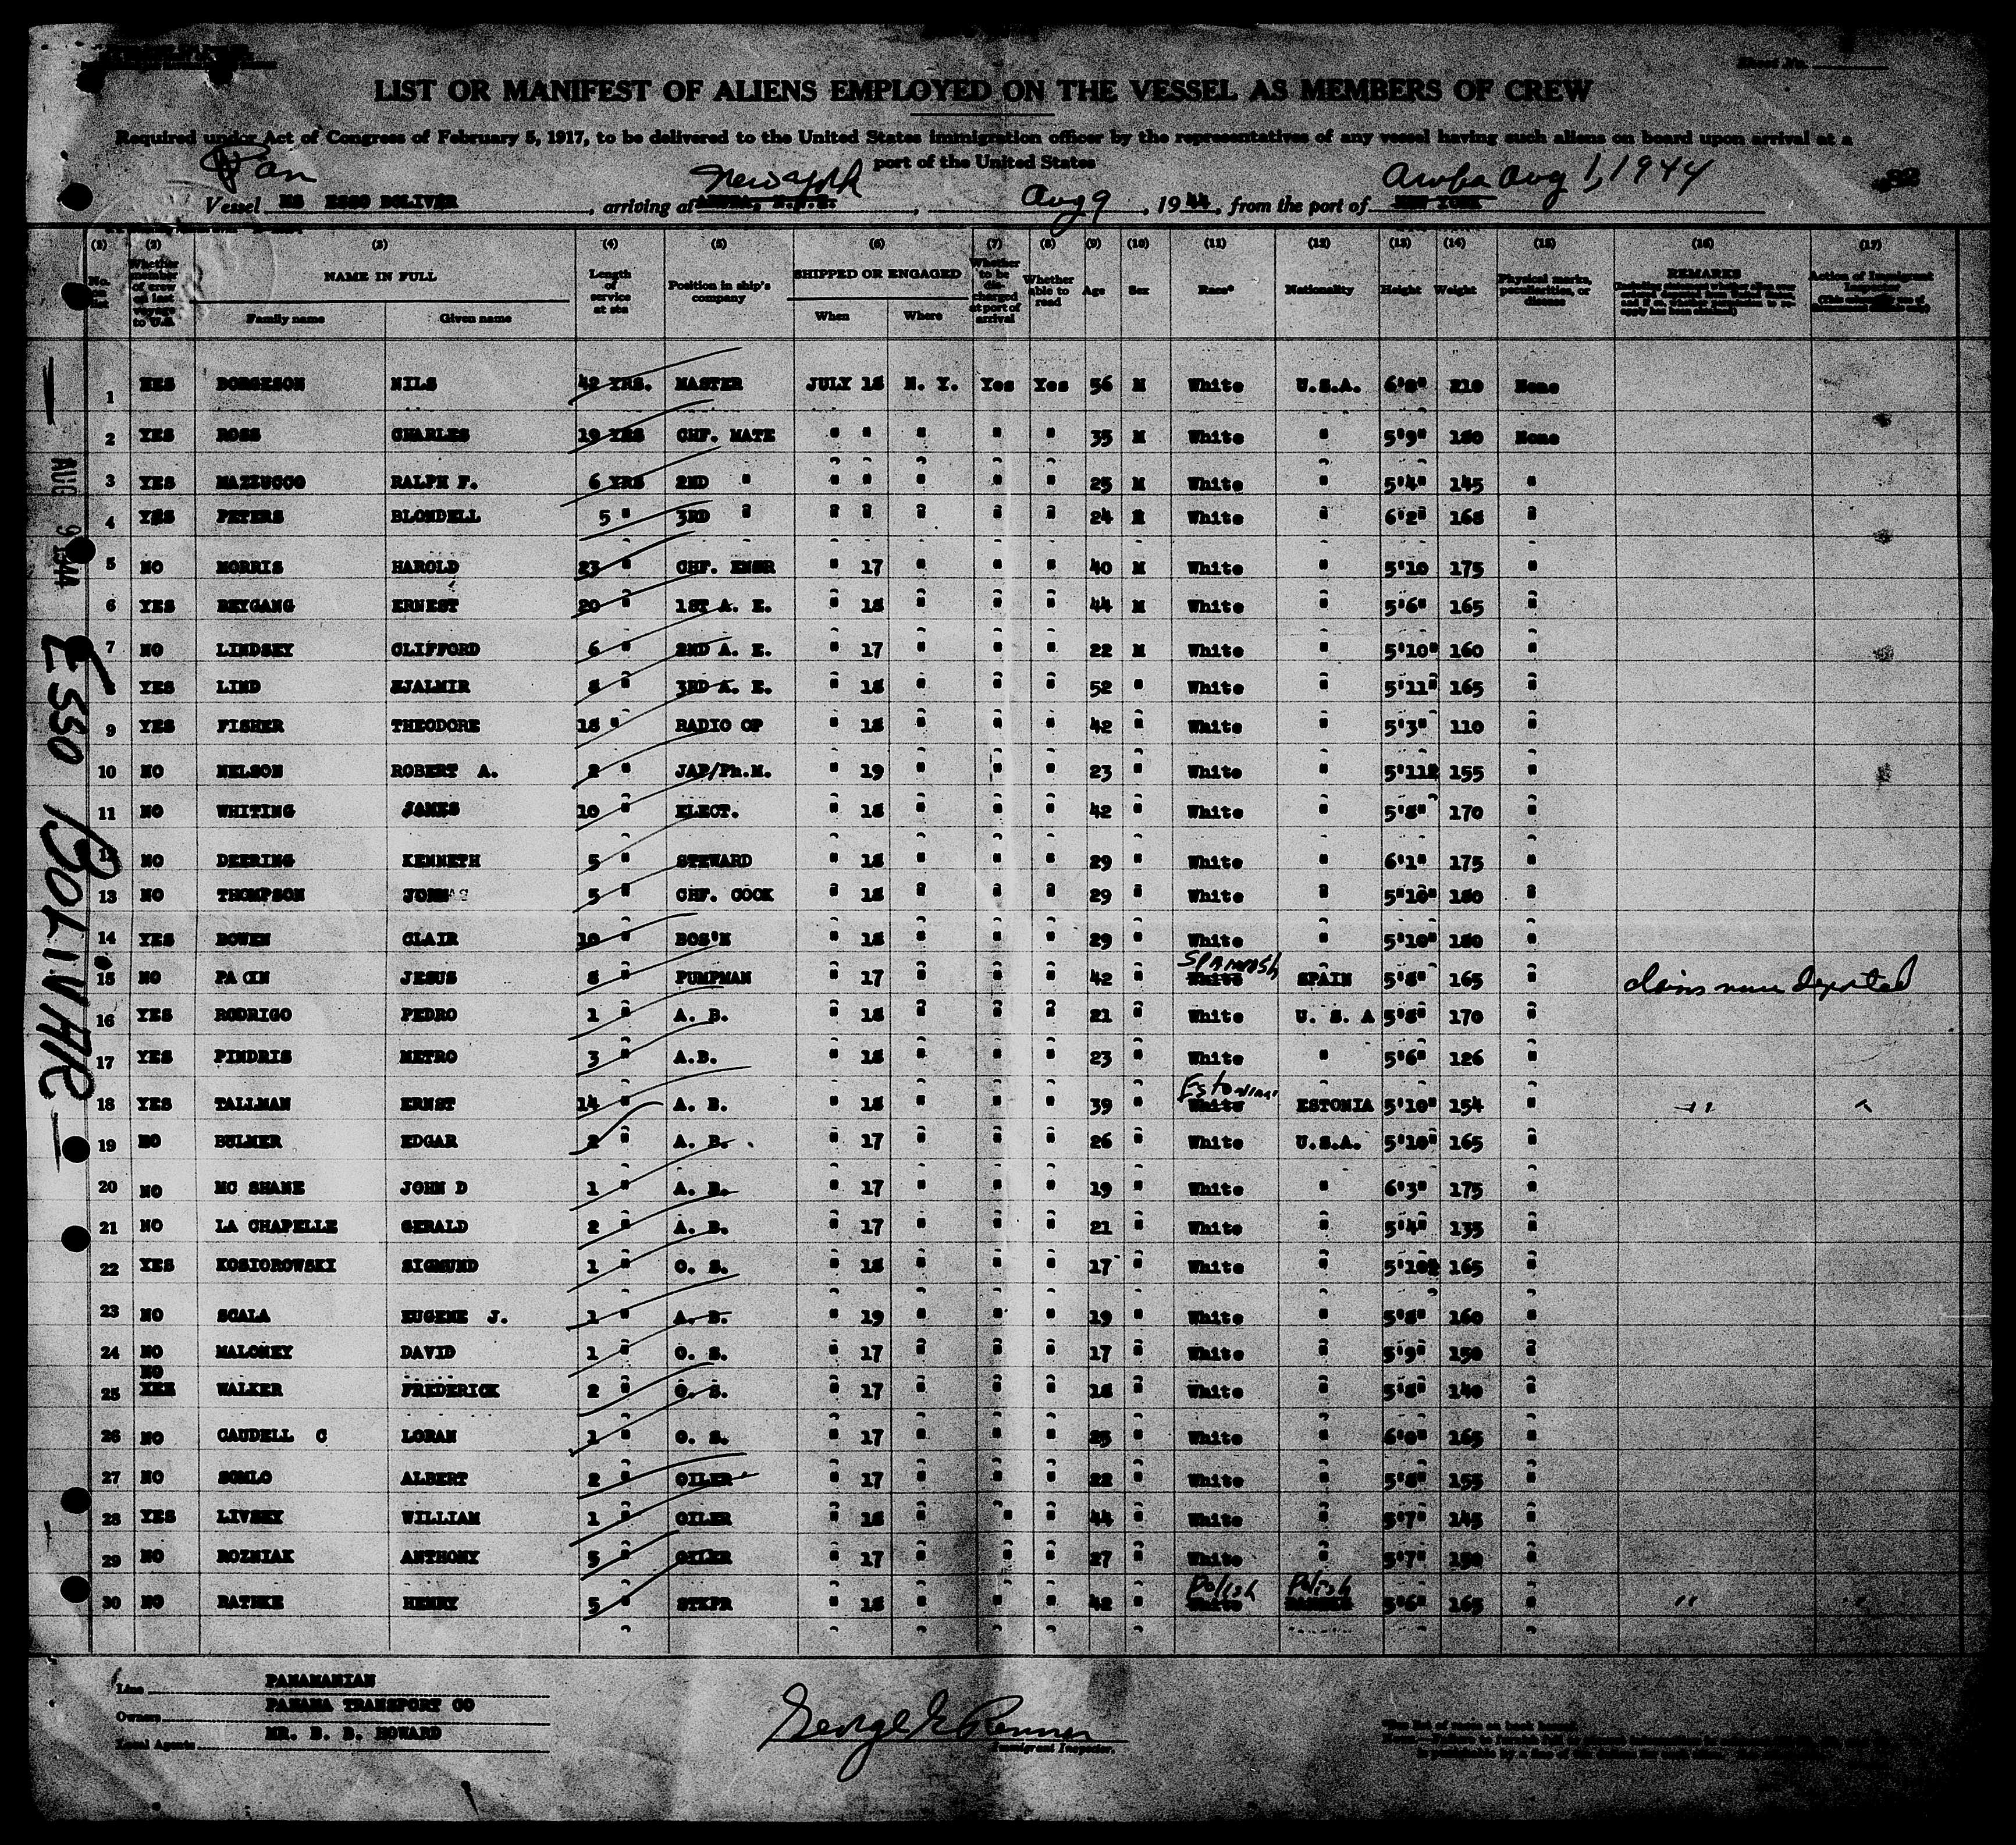 LIST OR MANIFEST OF ALIENS EMPLOYED ON THE VESSEL AS MEMBERS OF CREW
Required under Act of Congress of February 5, 1917, to be delivered to the United States immigration officer by the representatives of any vessel having such aliens on board upon arrival at a
port of the United States
Pan
New York
Aruba Aug 1, 1944
Vessel MS ESSO BOLIVER, arriving at ARUBA, N.W.I., Aug 9, 1944, from the port of NEW YORK
(1) (2) (3) (4) (5) (6) (7) (8) (9) (10) (11) (12) (13) (14) (15) (16) (17)
Whether member of crew on last voyage to U.S. NAME IN FULL Family name Given name Length of service at sea Position in ship's company SHIPPED OR ENGAGED When Where Whether to be discharged at port of arrival Whether able to read Age Sex Race* Nationality Height Weight Physical marks, peculiarities, or disease REMARKS Action of Immigrant Inspector
1 YES BORGESON NILS 42 YRS. MASTER JULY 18 N. Y. Yes Yes 56 M White U.S.A. 6'2" 210 None
2 YES ROSS CHARLES 19 YRS CHF. MATE " " " " " 35 M White " 5'9" 180 None
3 YES MAZZUCCO RALPH F. 6 YRS 2ND " " " " " " 25 M White " 5'4" 145 "
4 YES PETERS BLONDELL 5 " 3RD " " " " " " 24 M White " 6'2" 168 "
5 NO MORRIS HAROLD 23 " CHF. ENGR " 17 " " " 40 M White " 5'10 175 "
6 YES BEYGANG ERNEST 20 " 1ST A. E. " 18 " " " 44 M White " 5'6" 165 "
7 NO LINDSEY CLIFFORD 6 " 2ND A. E. " 17 " " " 22 M White " 5'10" 160 "
8 YES LIND HJALMIR 8 " 3RD A. E. " 18 " " " 52 " White " 5'11" 165 "
9 YES FISHER THEODORE 18 " RADIO OP " 18 " " " 42 " White " 5'3" 110 "
10 NO NELSON ROBERT A. 2 " JAP/Ph.M. " 19 " " " 23 " White " 5'11" 155 "
11 NO WHITING JAMES 10 " ELECT. " 18 " " " 42 " White " 5'8" 170 "
12 NO DEERING KENNETH 5 " STEWARD " 18 " " " 29 " White " 6'1" 175 "
13 NO THOMPSON 5 " CHF. COOK " 18 " " " 29 " White " 5'10" 180 "
14 YES BOWEN CLAIR 10 " BOS'N " 18 " " " 29 " White " 5'10" 180 "
15 NO PACIN JESUS 8 " PUMPMAN " 17 " " " 42 " White Spanish SPAIN 5'8" 165 " claims never deported
16 YES RODRIGO PEDRO 1 " A. B. " 18 " " " 21 " White U. S. A 5'8" 170 "
17 YES PINDRIS METRO 3 " A.B. " 18 " " " 23 " White " 5'6" 126 "
18 YES TALLMAN ERNST 14 " A. B. " 18 " " " 39 " White Estonian ESTONIA 5'10" 154 " "
19 NO BULMER EDGAR 2 " A. B. " 17 " " " 26 " White U.S.A. 5'10" 165 "
20 NO MC SHANE JOHN D 1 " A. B. " 17 " " " 19 " White " 6'3" 175 "
21 NO LA CHAPELLE GERALD 2 " A. B. " 17 " " " 21 " White " 5'4" 135 "
22 YES KOSIOROWSKI SIGMUND 1 " O. S. " 18 " " " 17 " White " 5'10" 165 "
23 NO SCALA EUGENE J. 1 " A. B. " 19 " " " 19 " White " 5'8" 160 "
24 NO MALONEY DAVID 1 " O. S. " 17 " " " 17 " White " 5'9" 150 "
25 NO WALKER FREDERICK 2 " O. S. " 17 " " " 18 " White " 5'8" 140 "
26 NO CAUDELL C LORAN 1 " O. S. " 17 " " " 25 " White " 6'0" 165 "
27 NO SOMLO ALBERT 2 " OILER " 17 " " " 22 " White " 5'8" 155 "
28 YES LIVSEY WILLIAM 1 " OILER " 18 " " " 44 " White " 5'7" 145 "
29 NO ROZNIAK ANTHONY 5 " OILER " 17 " " " 27 " White " 5'7" 150 "
30 NO RATHKE HENRY 5 " STKPR " 18 " " " 42 " White Polish Polish 5'6" 165 " " "
AUG 9 1944
ESSO BOLIVAR
Line PANAMANIAN
Owners PANAMA TRANSPORT CO
Local Agents MR. B. B. HOWARD
George E Renner
Immigrant Inspector.